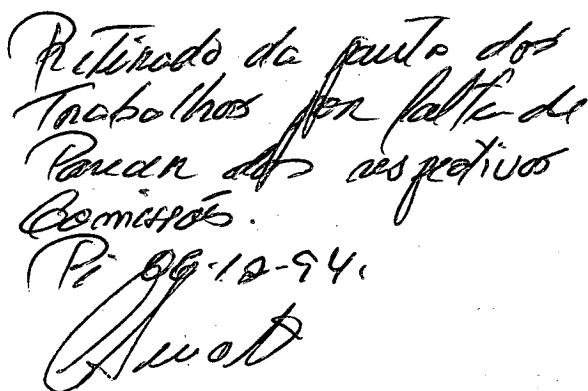 Retirado da pauta dos
Trabalhos por falta de
Parecer das respectivas
Comissões.